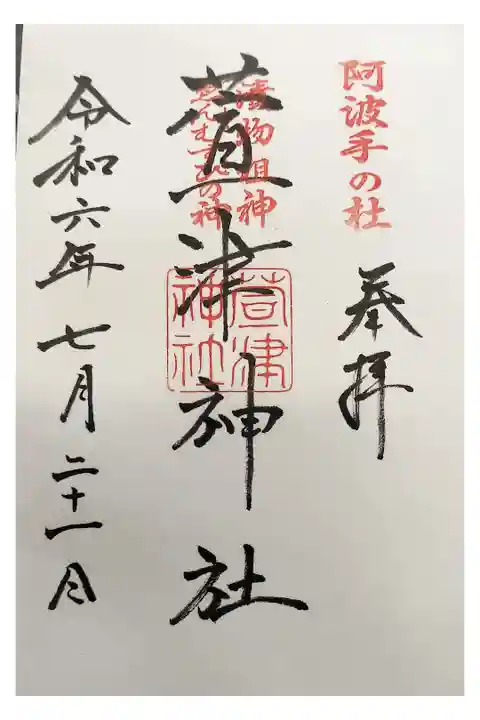 阿波手の杜
奉拝
漬物祖神
ゑんむすびの神
萱津神社
萱津
神社
令和六年七月二十一日